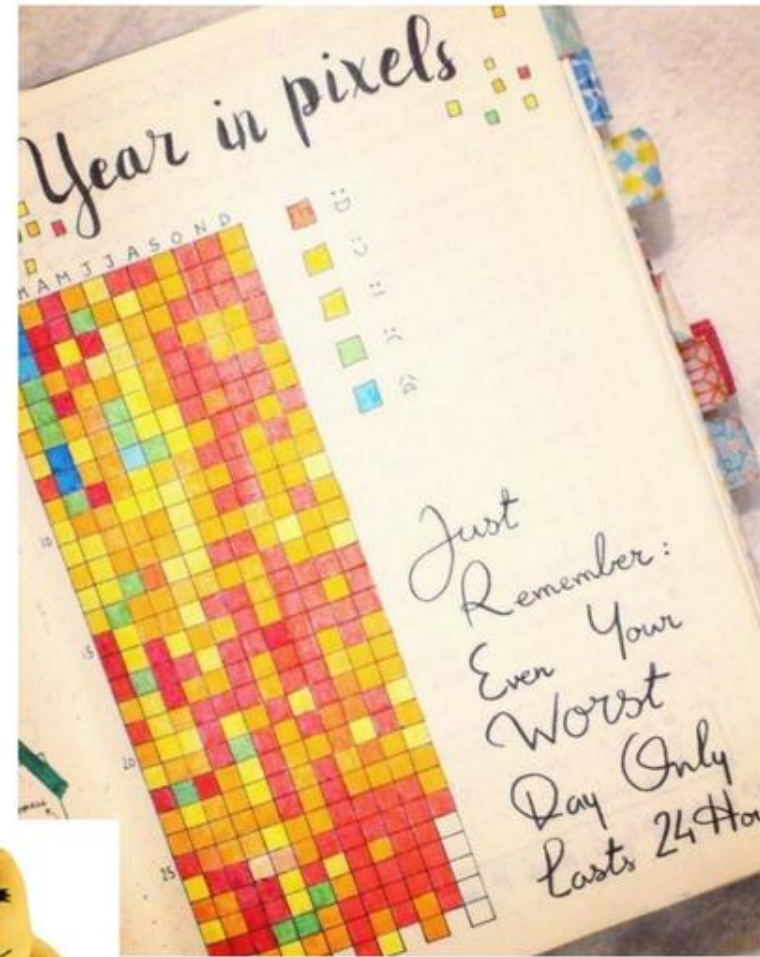 Year in pixels
M A M J J A S O N D
:D
:)
:|
:(
10
15
20
25
Just
Remember:
Even Your
Worst
Day Only
Lasts 24 Hou